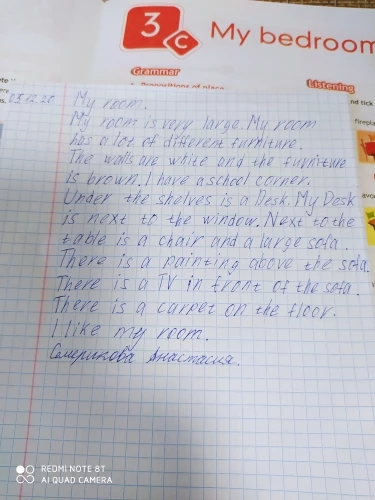 3c My bedroom
Grammar
Listening
nd tick
fireplac
03.12.20
My room.
My room is very large. My room
has a lot of different furniture.
The walls are white and the furniture
is brown. I have a school corner.
Under the shelves is a Desk. My Desk
is next to the window. Next to the
table is a chair and a large sofa.
There is a painting above the sofa.
There is a TV in front of the sofa.
There is a carpet on the floor.
I like my room.
Семерикова Анастасия.
REDMI NOTE 8T
AI QUAD CAMERA